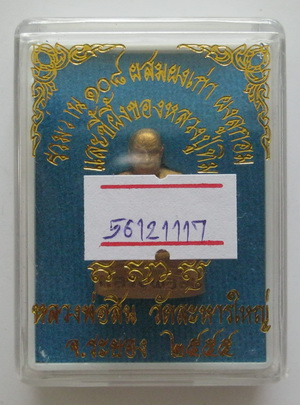 รวมว่าน ๑๐๘ ผสมผงเก่า ผงลูกอม
และขี้ผึ้งของหลวงปู่ทิม
56121117
หลวงพ่อสิน วัดละหารใหญ่
จ.ระยอง ๒๕๕๕